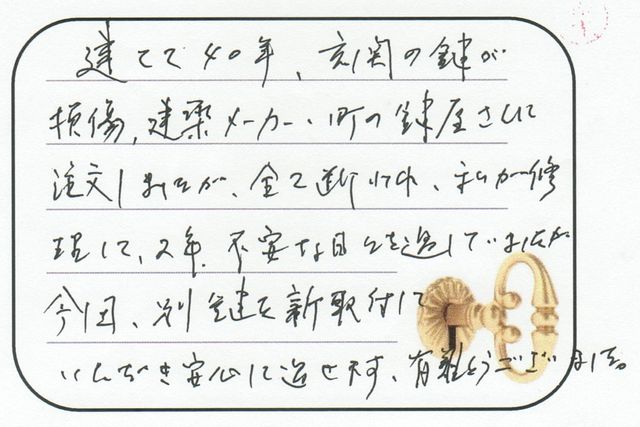 建てて40年、玄関の鍵が
損傷、建築メーカー・町の鍵屋さんに
注文しましたが、全て断られ、私が修
理して、2年、不安な日々を過していましたが
今回、別鍵を新取付して
いただき安心して過せます、有難とうございました。